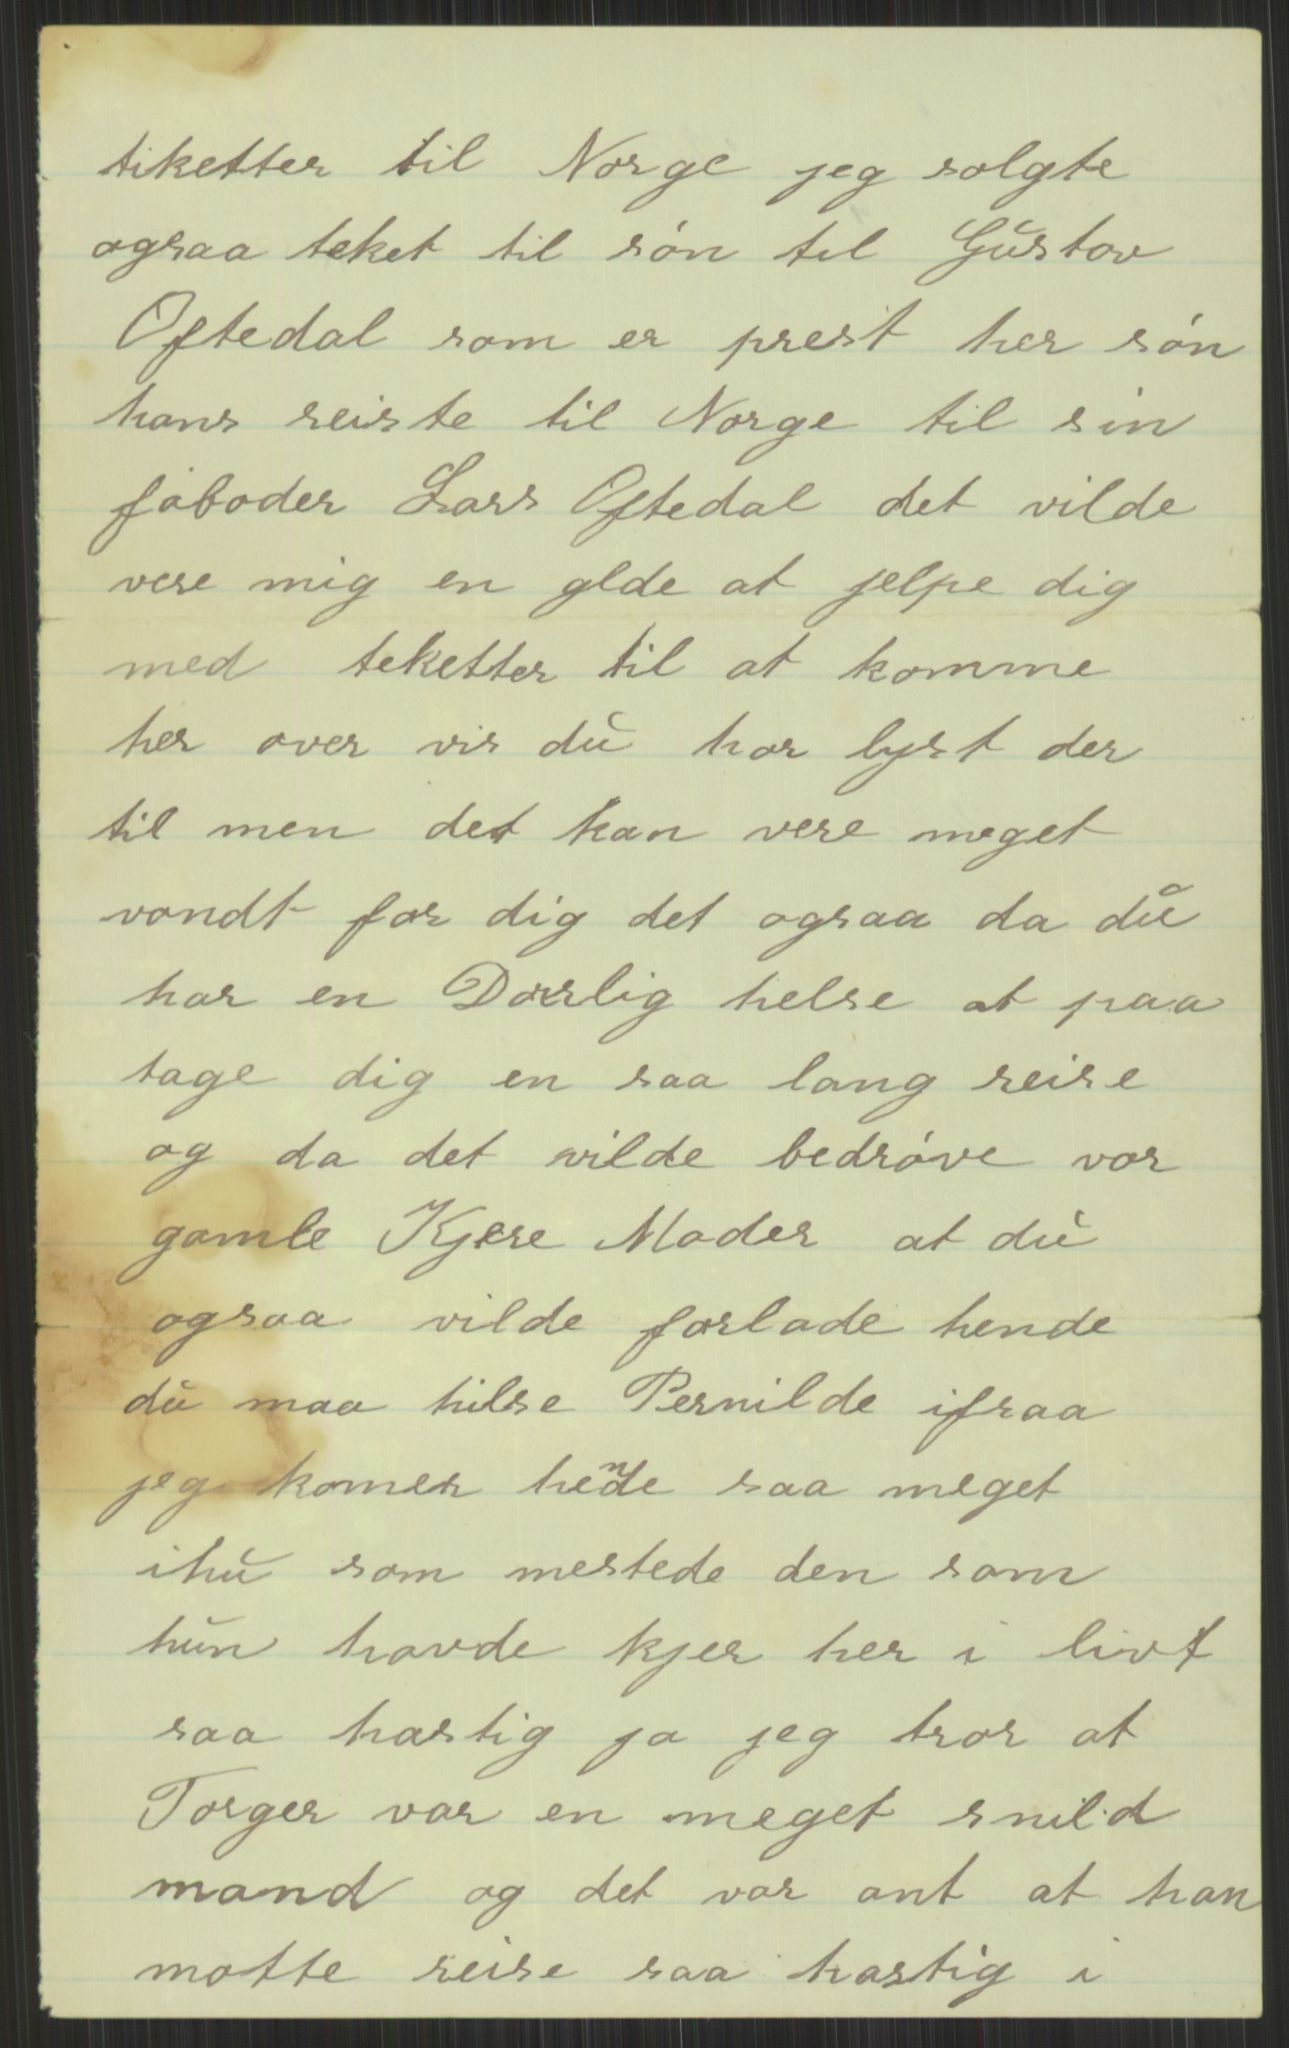 tiketter til Norge jeg solgte
ogsaa teket til són til Gustav
Oftedal som er prest her són
hans reiste til Norge til sin
faboder Lars Oftedal det vilde
vere mig en glde at jelpe dig
med teketter til at komme
her over vis du har lyst der
til men det kan vere meget
vondt for dig det ogsaa da du
har en Daarlig helse at paa
tage dig en saa lang reise
og da det vilde bedróve vor
gamle Kjere Moder at du
ogsaa vilde forlade hende
du maa hilse Pernilde ifraa
jeg komer hende saa meget
ihu som mestede den som
hun havde kjer her i livt
saa hastig ja jeg tror at
Torger var en meget snild
mand og det var ont at han
motte reise saa hastig i